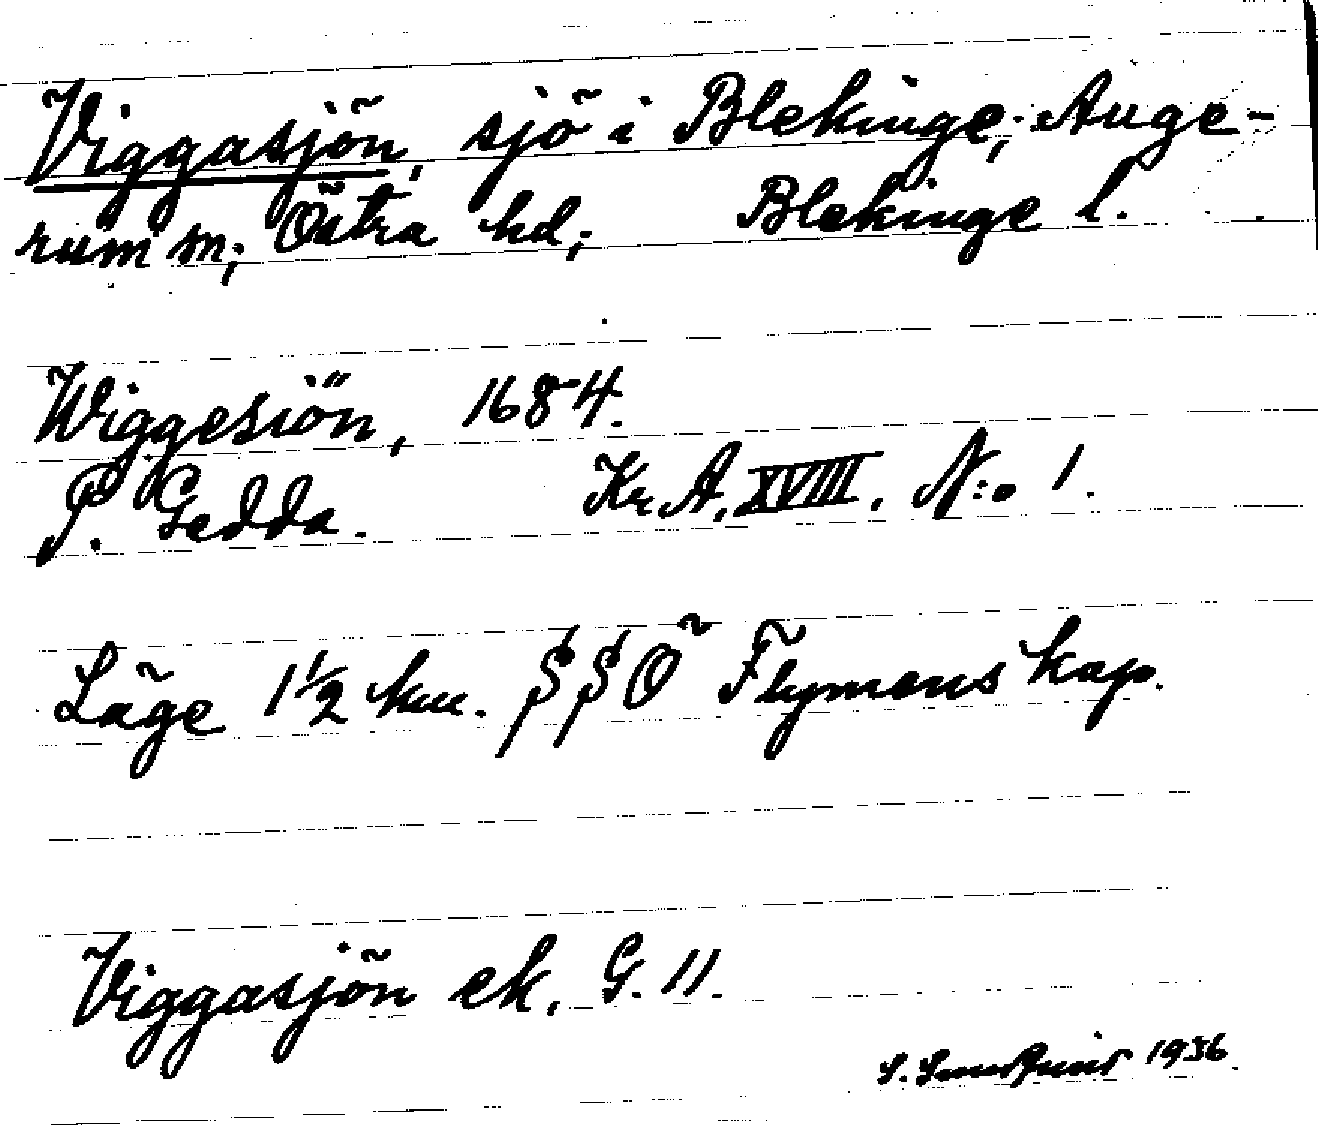 Viggasjön, sjö i Blekinge, Auge-
rum sn; Östra hd; Blekinge l.
Wiggesiön, 1684.
P. Gedda. Kr. A. XVIII. N:o 1.
Läge 1 1/2 km. SSÖ Flymens kap.
Viggasjön ek. G. 11.
S. 1936